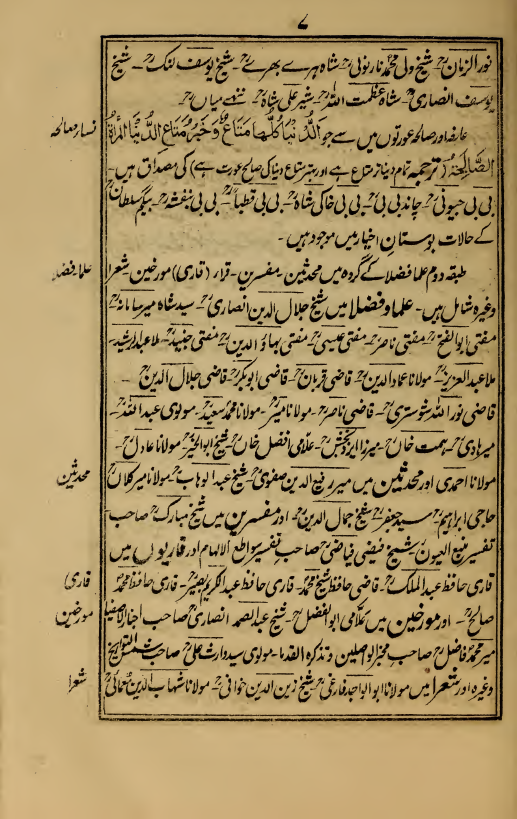 ۷
نور الزمان۔ شیخ ولی محمد نارنولی۔ شاہ ہرے بھرے۔ شیخ یوسف لنگ۔ شیخ
یوسف انصاری۔ شاہ عظمت اللہ۔ شیر علی شاہ۔ ننھے میاں۔
عارفہ اور صالحہ عورتوں میں سے جو اَلدُّنْیَا کُلُّھَا مَتَاعٌ وَّخَیْرُ مَتَاعِ الدُّنْیَا المرأۃ
نساء صالحہ
الصَّالِحَۃُ (ترجمہ تمام دنیا متاع ہے اور بہتر متاع دنیا کی صالح عورت ہے) کی مصداق ہیں۔
بی بی جیونی۔ چاند بی بی۔ بی بی خاکی شاہ۔ بی بی قطبا۔ بی بی بنفشہ۔ بیگم سلطان
کے حالات بوستان اخیار میں موجود ہیں۔
طبقہ دوم علما فضلا کے گروہ میں محدثین۔ مفسرین۔ قراء (قاری) مورخین۔ شعرا
علما فضلا
وغیرہ شامل ہیں۔ علما و فضلا میں شیخ جلال الدین انصاری۔ سید شاہ میر سامانہ۔
مفتی ابو الفتح۔ مفتی ناصر۔ مفتی عیسیٰ۔ مفتی بہاؤ الدین۔ مفتی جنید۔ ملا عبد الرشید۔
ملا عبد العزیز۔ مولانا عماد الدین۔ قاضی قربان۔ قاضی ابوبکر۔ قاضی جلال الدین۔
قاضی نور اللہ شوستری۔ قاضی ناصر۔ مولانا میر۔ مولانا محمد سعید۔ مولوی عبد اللہ۔
میر ہادی۔ ہمت خان۔ میرزا ایزد بخش۔ علامی افضل خان۔ شیخ ابو الخیر۔ مولانا عادل۔
مولانا احمدی اور محدثین میں میر رفیع الدین صفوی۔ شیخ عبد الوہاب۔ مولانا میر کلاں
محدثین
حاجی ابراہیم۔ سید جعفر۔ شیخ جمال الدین۔ اور مفسرین میں شیخ مبارک صاحب
تفسیر منبع العیون۔ شیخ فیضی فیاضی صاحب تفسیر سواطع الالہام اور قاریوں میں
قاری حافظ عبد الملک۔ قاضی حافظ شیخ محمد۔ قاری حافظ عبد الکریم بصیر۔ قاری حافظ محمد
قاری
صالح۔ اور مورخین میں علامی ابو الفضل۔ شیخ عبد الصمد انصاری صاحب اخبار الاصفیا
مورخین
میر محمد فاضل صاحب مخبر الواصلین و تذکرہ القدما۔ مولوی سید وارث علی صاحب شمس التواریخ
وغیرہ اور شعرا میں مولانا ابو الواجد فارغی۔ شیخ زین الدین خوافی۔ مولانا شہاب الدین معمائی
شعرا